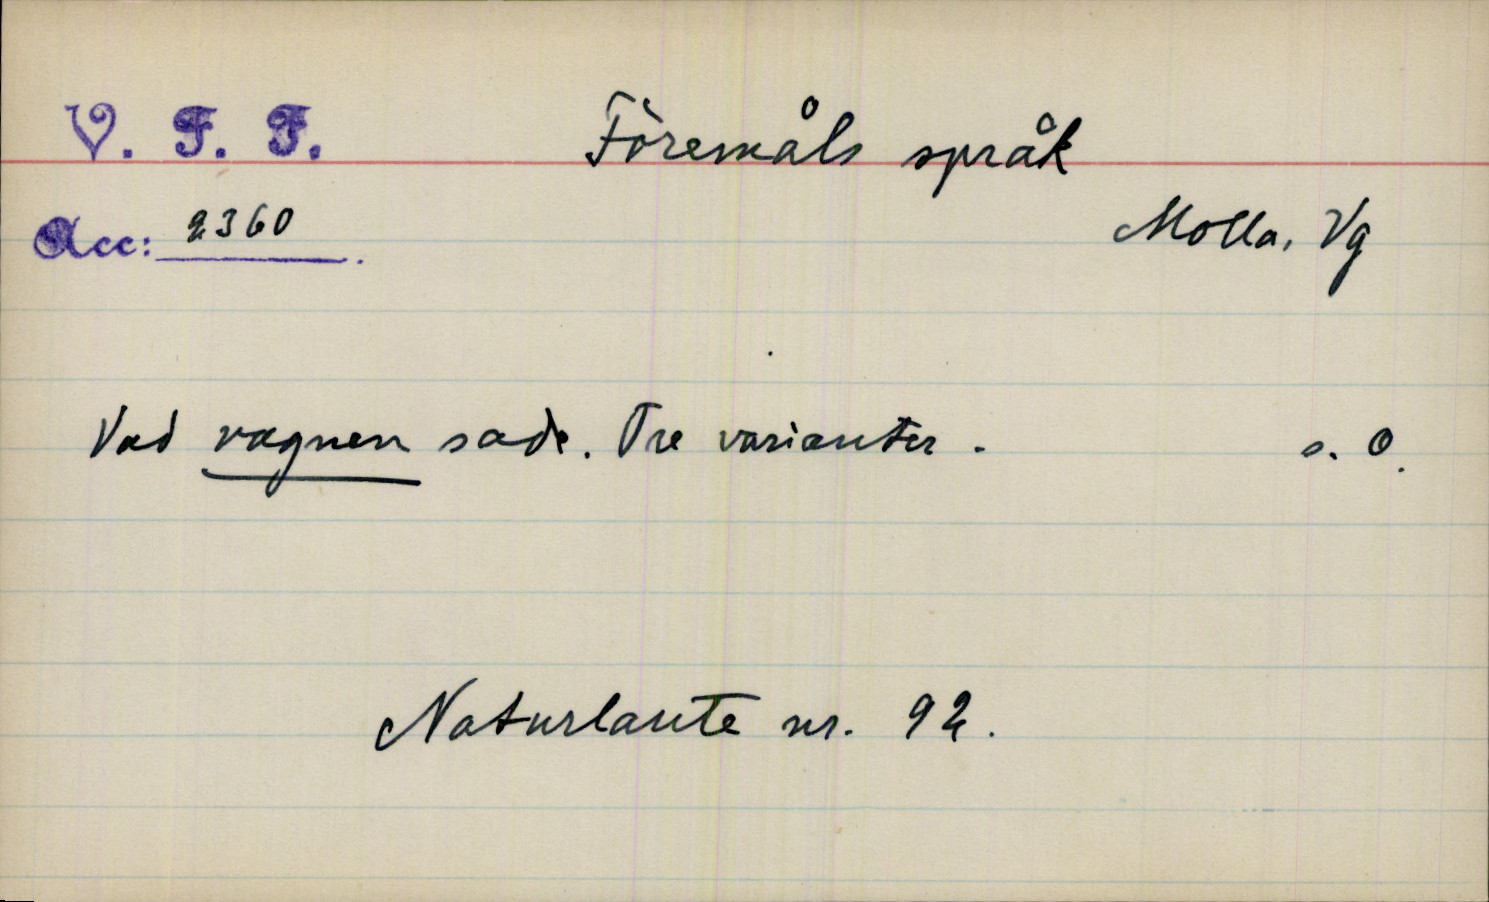 V. F. F. Föremåls språk
Acc: 2360. Molla, Vg
Vad vagnen sade. Tre varianter. s. 0.
Naturlaute nr. 92.